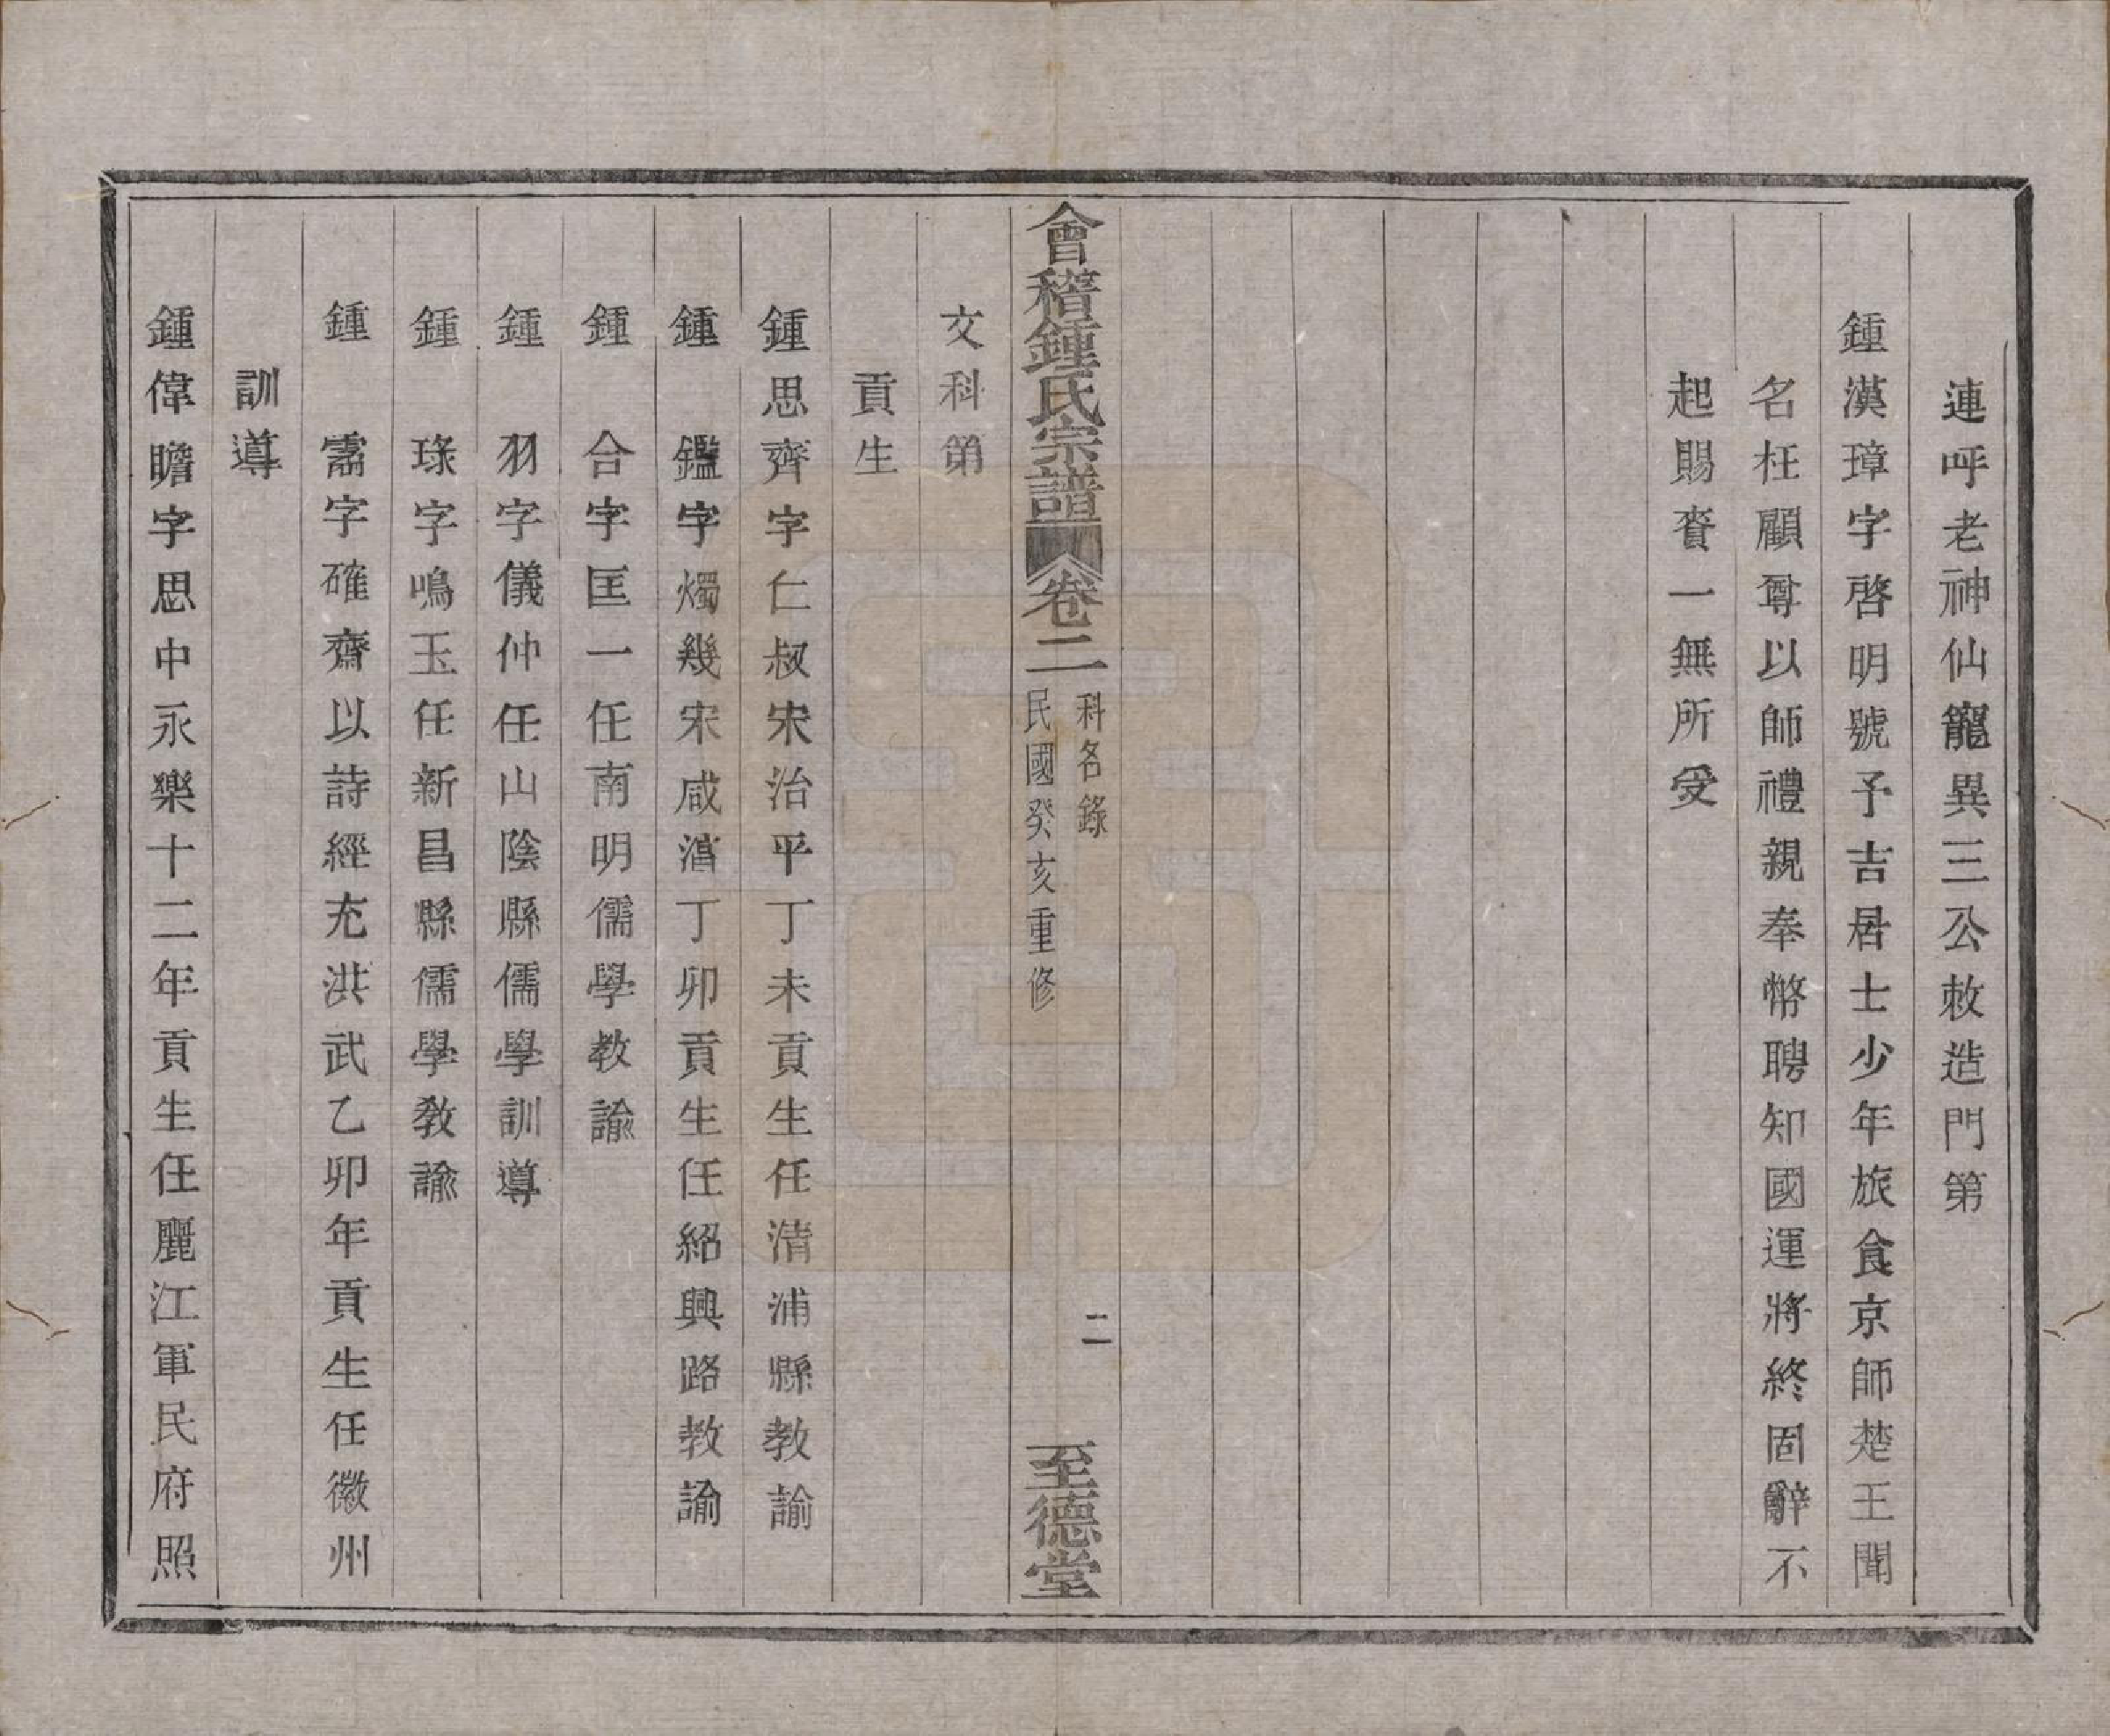 連呼老神仙寵異三公敕造門第
鍾漢璋字啓明號予吉居士少年旅食京師楚王聞
名枉顧尊以師禮親奉幣聘知國運將終固辭不
起賜賚一無所受
會稽鍾氏宗譜
卷二
科名錄
民國癸亥重修
二
至德堂
文科第
貢生
鍾思齊字仁叔宋治平丁未貢生任清浦縣教諭
鍾 鑑字燭幾宋咸淳丁卯貢生任紹興路教諭
鍾 合字匡一任南明儒學教諭
鍾 羽字儀仲任山陰縣儒學訓導
鍾 瑑字鳴玉任新昌縣儒學教諭
鍾 霱字確齋以詩經充洪武乙卯年貢生任徽州
訓導
鍾偉瞻字思中永樂十二年貢生任麗江軍民府照